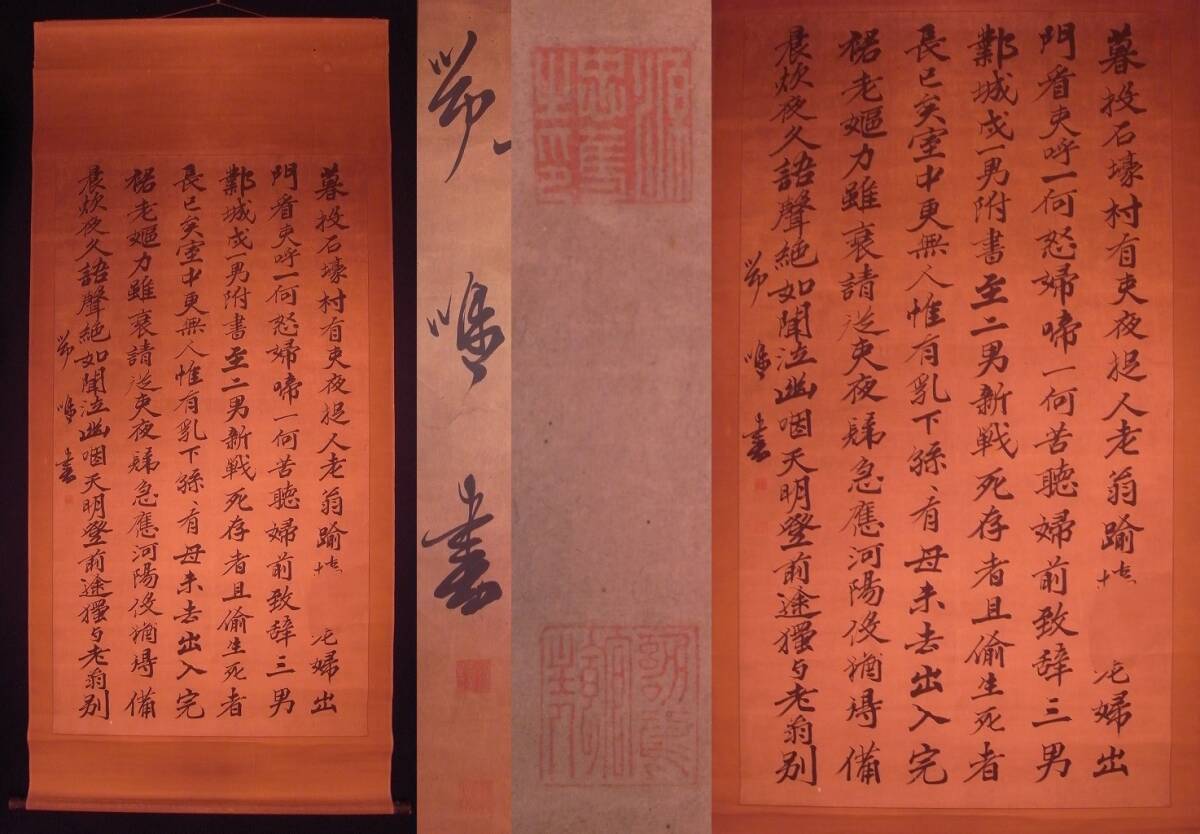 暮投石壕村有吏夜捉人老翁踰婦出
門看吏呼一何怒婦啼一何苦聽婦前致辞三男
鄴城戍一男附書至二男新戦死存者且偷生死者
長已矣室中更無人惟有乳下孫、有母未去出入完
裙老嫗力雖衰請從吏夜歸急應河陽役猶得備
晨炊夜久語聲絶如聞泣幽咽天明登前途獨与老翁別
書
書
源忠之印
暮投石壕村有吏夜捉人老翁踰婦出
門看吏呼一何怒婦啼一何苦聽婦前致辞三男
鄴城戍一男附書至二男新戦死存者且偷生死者
長已矣室中更無人惟有乳下孫、有母未去出入完
裙老嫗力雖衰請從吏夜歸急應河陽役猶得備
晨炊夜久語聲絶如聞泣幽咽天明登前途獨与老翁別
書